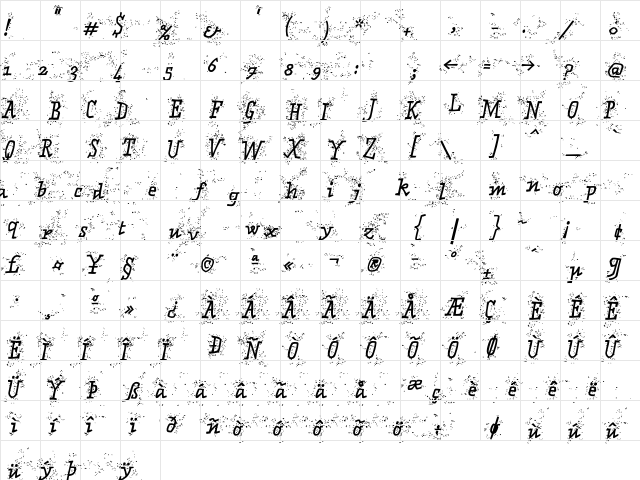 ! " # $ % & ' ( ) * + , - . / 0
1 2 3 4 5 6 7 8 9 : ; ← = → ? @
A B C D E F G H I J K L M N O P
Q R S T U V W X Y Z [ \ ] ^ _ `
a b c d e f g h i j k l m n o p
q r s t u v w x y z { | } ~ ¡ ¢
£ ¤ ¥ § ¨ © ª « ¬ ® ¯ ° ± ´ µ ¶
· ¸ º » ¿ À Á Â Ã Ä Å Æ Ç È É Ê
Ë Ì Í Î Ï Ð Ñ Ò Ó Ô Õ Ö Ø Ù Ú Û
Ü Ý Þ ß à á â ã ä å æ ç è é ê ë
ì í î ï ð ñ ò ó ô õ ö ÷ ø ù ú û
ü ý þ ÿ